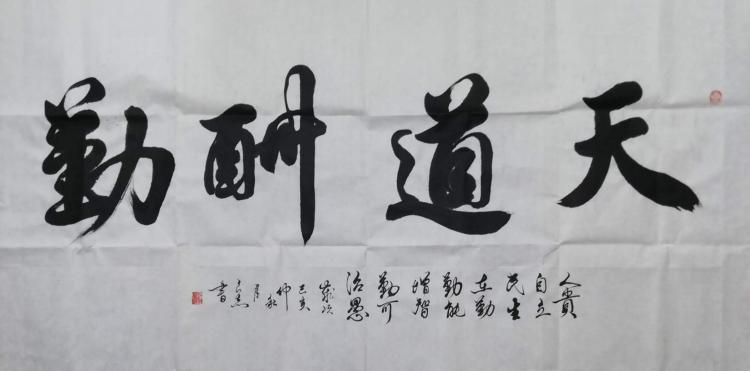 天道酬勤
人貴
自立
民生
在勤
勤能
增智
勤可
治愚
歲次
己亥
仲秋
月
書